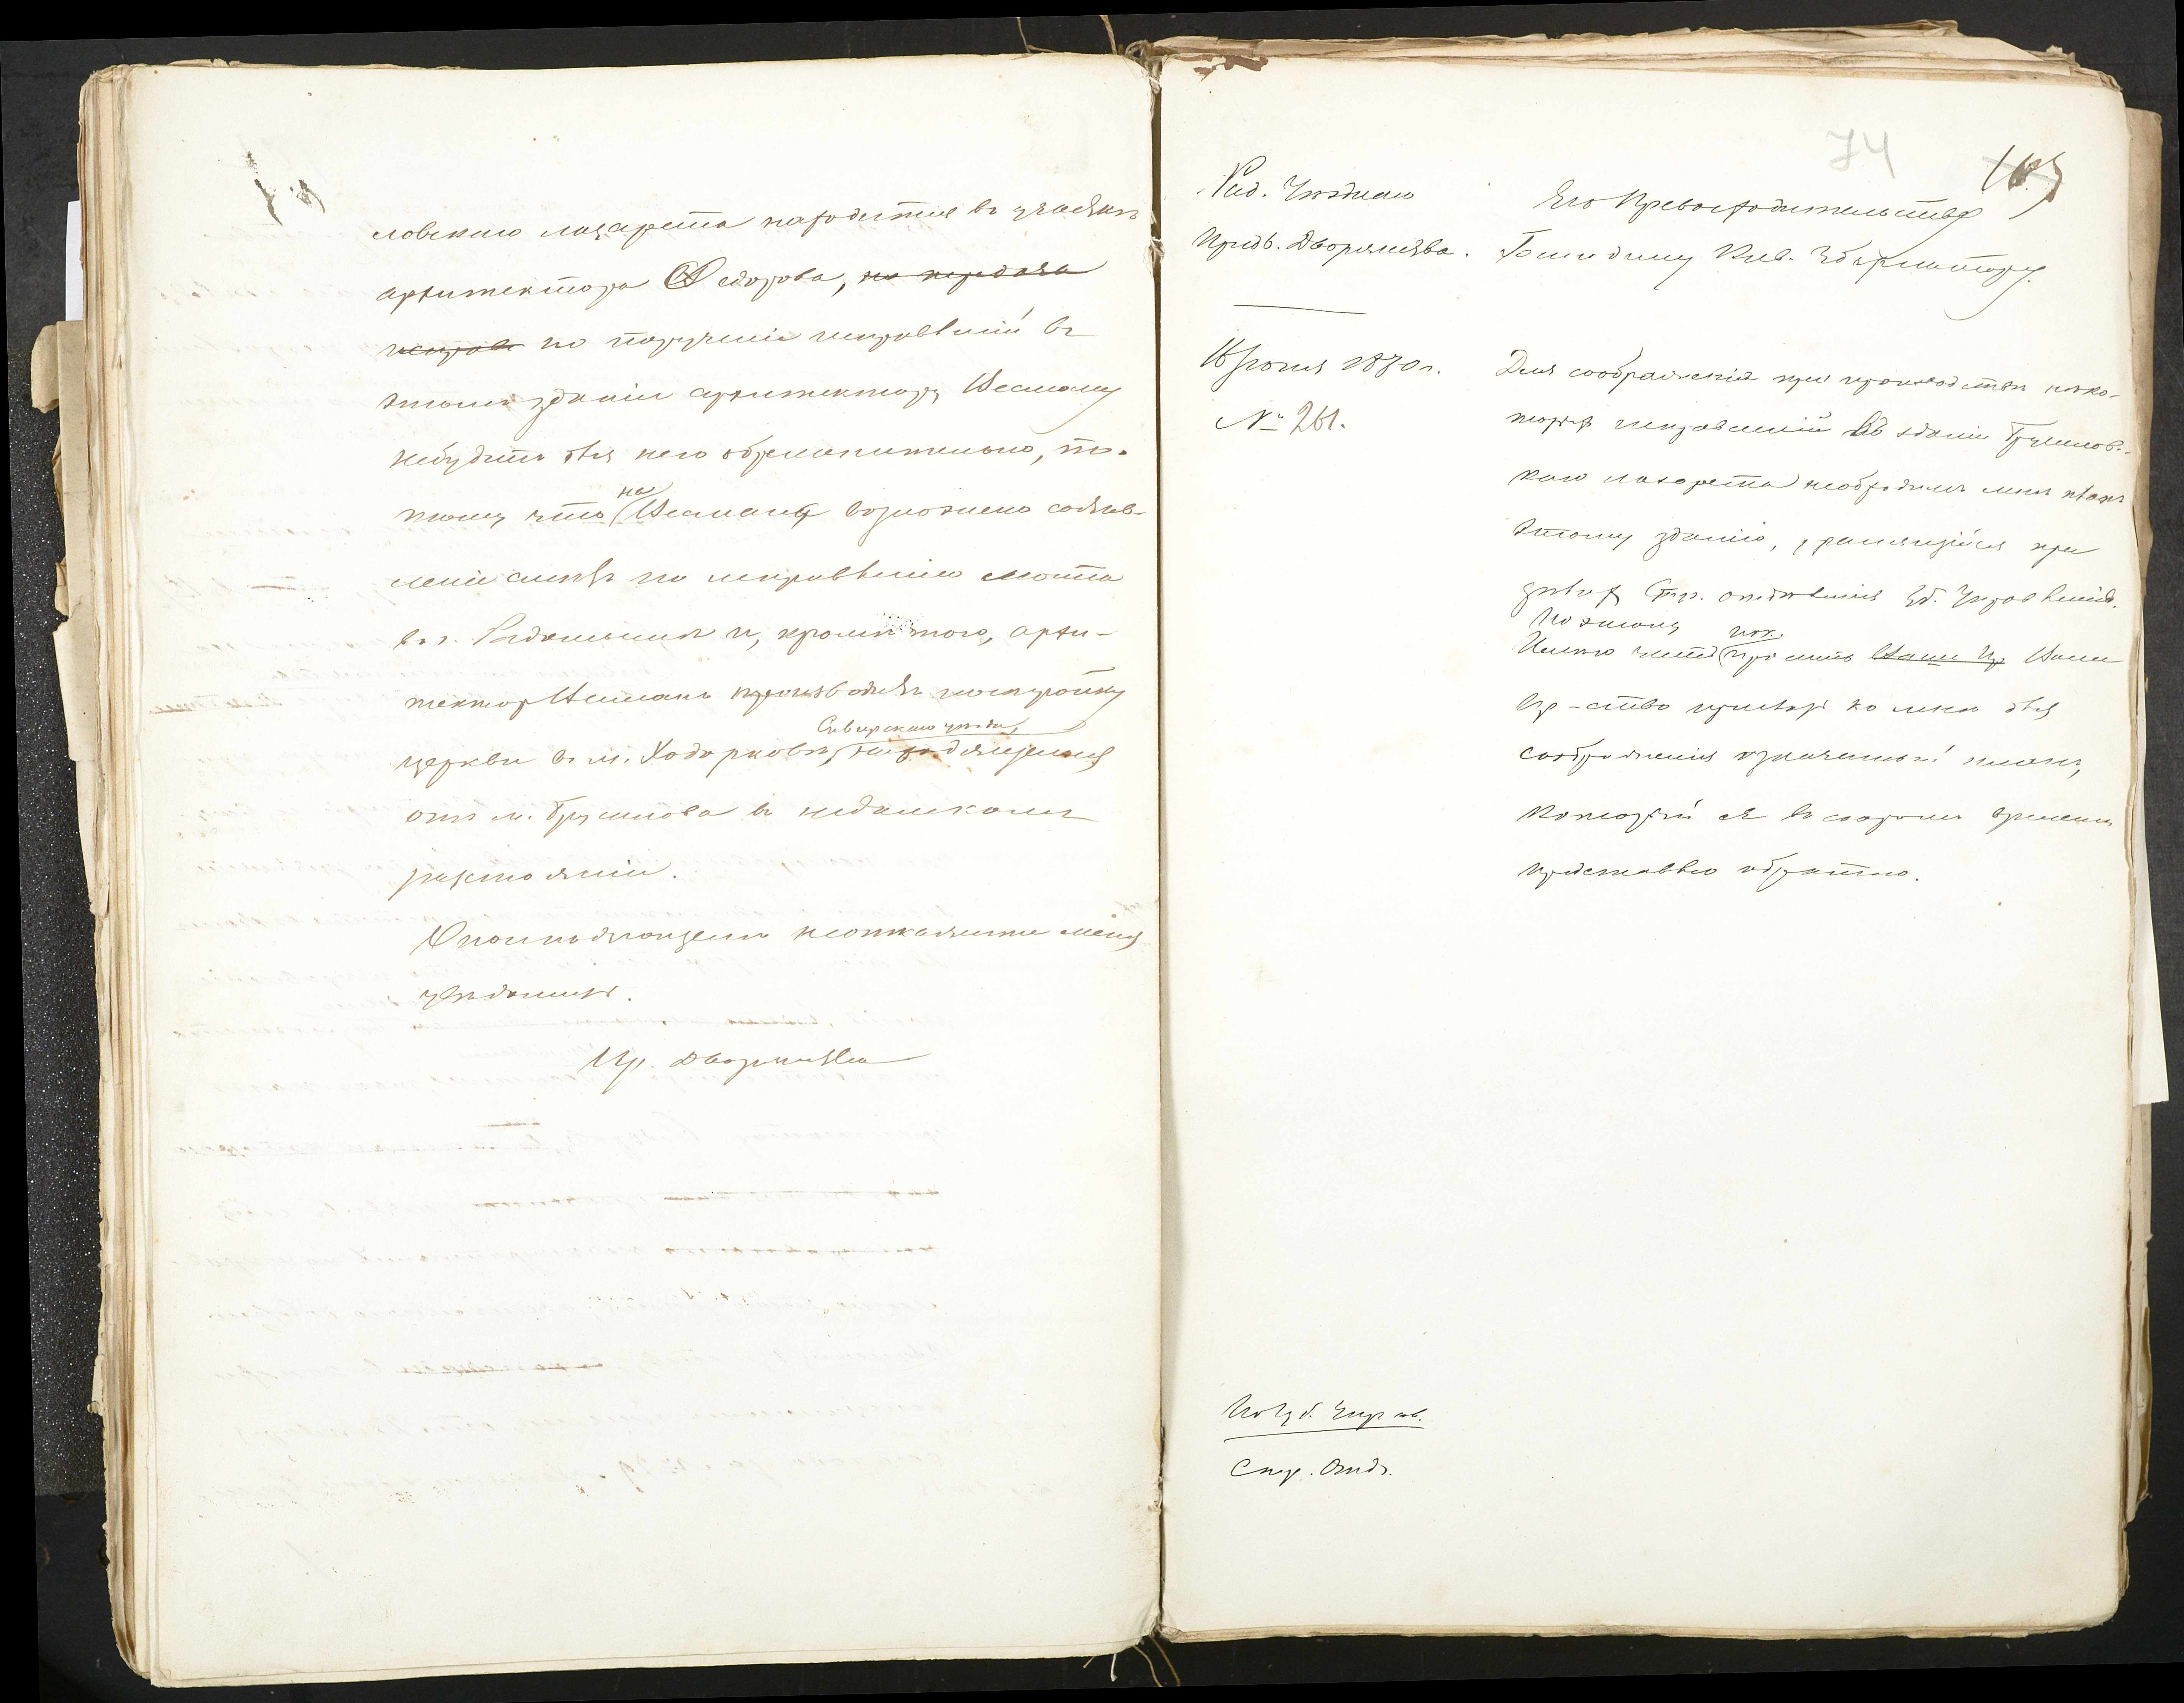 ловскаго лазарета находится въ участкѣ
архитектора Федорова, но передача
исправ но порученіе исправленій въ
этомъ зданіи архитектору Иесману
небудетъ для него обременительно, по-
тому что на Иесмана возложено составле-
ніе смѣтъ по исправленію моста
въ г. Радомыслѣ и, кромѣ того, архи-
текторъ Иесманъ производитъ постройку
церкви въ м. Ходорковѣ, Сквирскаго уѣзда, находящемся
отъ м. Брусилова въ недалекомъ
разстояніи.
О послѣдующемъ неоткажите меня
увѣдомить.
Пр. Дворянства
74
Рад. Уѣзднаго
Предв. Дворянства.
Его Превосходительству
Господину Кіев. Губернатору.
16 Іюня 1870 г.
№ 261.
Для соображенія при производствѣ нѣко-
торыхъ исправленій въ зданіи Брусилов-
скаго лазарета необходимъ мнѣ планъ
этому зданію, хранящійся при
дѣлахъ Стр. отдѣленія Губ. Правленія.
Поэтому
Имѣю честь пок. просить Ваше Пр. Ваше
Пр-ство прислать ко мнѣ для
соображенія означенный планъ,
который я въ скоромъ времени
представлю обратно.
По Губ. Правл.
Стр. Отд.